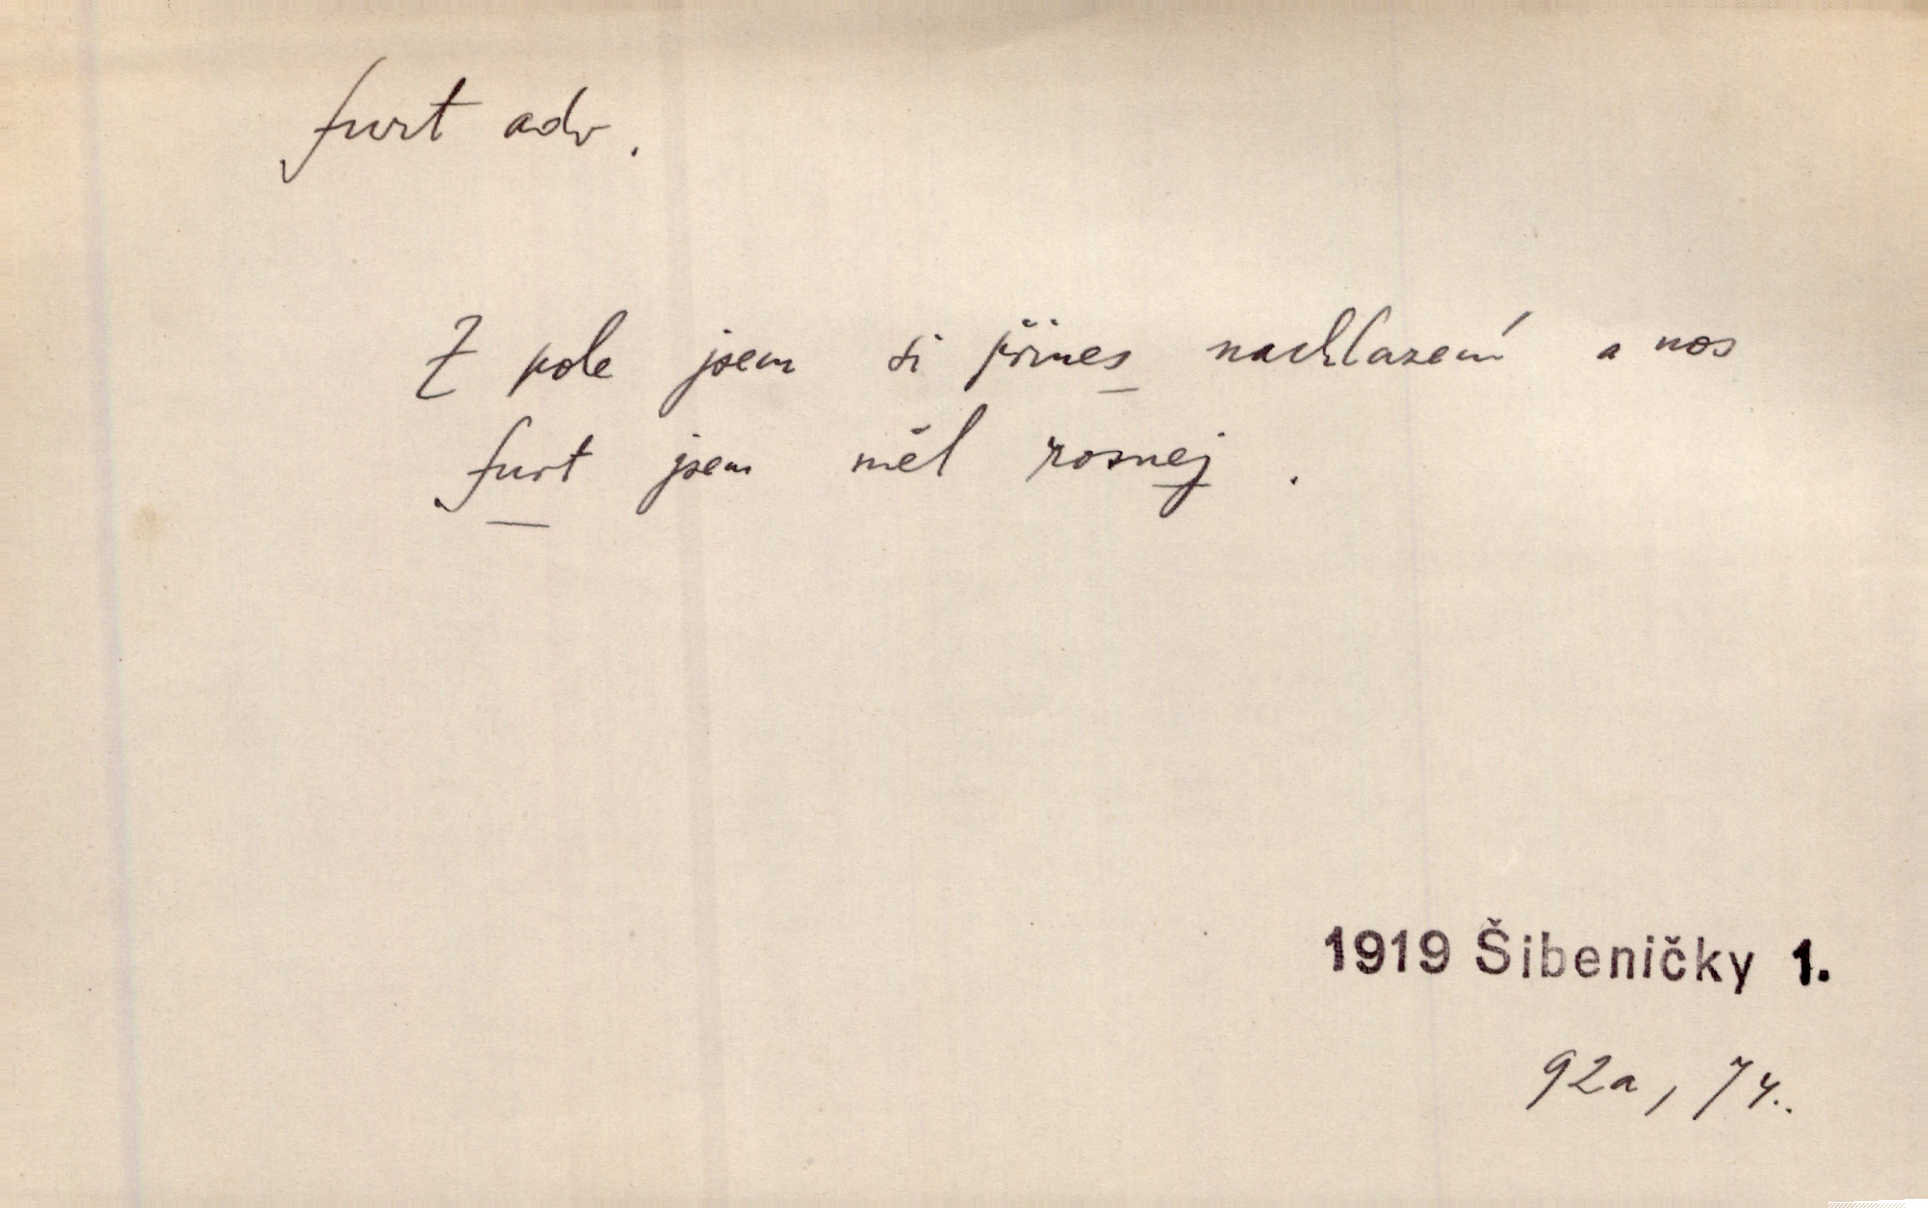 furt adv.
Z pole jsem si přines nachlazení a nos
furt jsem měl rosnej.
1919 Šibeničky 1.
92a, 74.